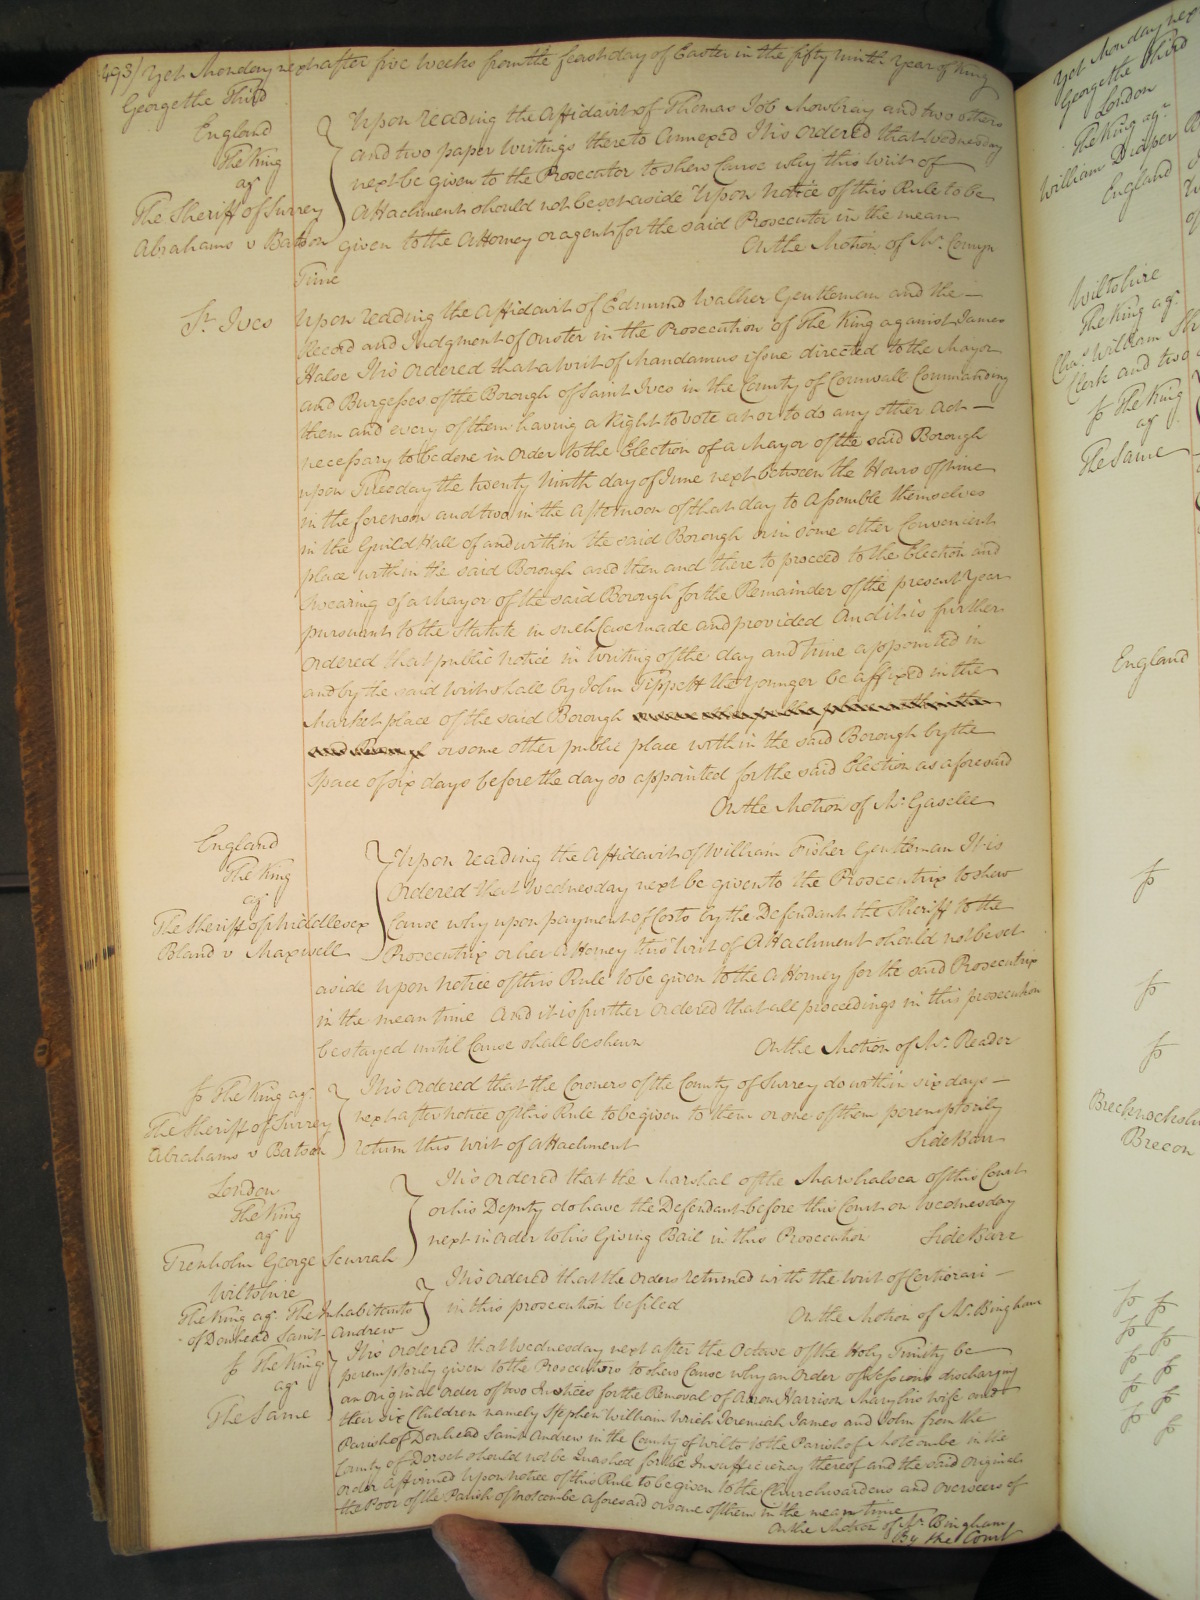 493/ Yet Monday next after five Weeks from the feast day of Easter in the fifty ninth Year of King
George the Third
England
The King
agt
The Sheriff of Surrey
Abrahams v Batson
Upon reading the Affidavit of Thomas Job Mowbray and two others
and two paper Writings thereto Annexed It is Ordered that Wednesday
next be given to the Prosecutor to shew Cause why this Writ of
Attachment should not be set aside Upon Notice of this Rule to be
given to the Attorney or agent for the said Prosecutor in the mean
Time
On the Motion of Mr. Comyn
St. Ives
Upon reading the Affidavit of Edmund Walker Gentleman and the —
Record and Judgment of Ouster in the Prosecution of The King against James
Halse It is Ordered that a Writ of Mandamus issue directed to the Mayor
and Burgesses of the Borough of Saint Ives in the County of Cornwall Commanding
them and every of them having a Right to vote at or to do any other Act —
necessary to be done in Order to the Election of a Mayor of the said Borough
upon Tuesday the twenty Ninth day of June next between the Hours of Nine
in the forenoon and two in the Afternoon of that day to Assemble themselves
in the Guild Hall of and within the said Borough or in some other Convenient
place within the said Borough and then and there to proceed to the Election and
Swearing of a Mayor of the said Borough for the Remainder of the present Year
pursuant to the Statute in such Case made and provided And it is further
Ordered that public Notice in Writing of the day and time appointed in
and by the said Writ shall by John Tippett the Younger be affixed in the
Market place of the said Borough
or some other public place within the said Borough by the
Space of six days before the day so appointed for the said Election as aforesaid
On the Motion of Mr. Gaselee
England
The King
agt
The Sheriff of Middlesex
Bland v Maxwell
Upon reading the Affidavit of William Fisher Gentleman It is
Ordered that Wednesday next be given to the Prosecutrix to shew
Cause why upon payment of Costs by the Defendant the Sheriff to the
Prosecutrix or her Attorney this Writ of Attachment should not be set
aside Upon Notice of this Rule to be given to the Attorney for the said Prosecutrix
in the mean time And it is further Ordered that all proceedings in this prosecution
be stayed until Cause shall be shewn
On the Motion of Mr. Reader
The King agt.
The Sheriff of Surrey
Abrahams v Batson
It is Ordered that the Coroners of the County of Surrey do within six days —
next after Notice of this Rule to be given to them or one of them peremptorily
return this Writ of Attachment
Side Barr
London
The King
agt
Trenholm George Scurrah
It is Ordered that the Marshal of the Marshalsea of this Court
or his Deputy do have the Defendant before this Court on Wednesday
next in order to his Giving Bail in this Prosecution
Side Barr
Wiltshire
The King agt. The Inhabitants
of Donhead Saint Andrew
It is Ordered that the Orders returned with the Writ of Certiorari —
in this prosecution be filed
On the Motion of Mr. Bingham
The King
agt
The Same
It is Ordered that Wednesday next after the Octave of the Holy Trinity be
peremptorily given to the Prosecutors to shew Cause why an Order of Sessions discharging
an Original Order of two Justices for the Removal of Aaron Harrison Mary his wife and
their six Children namely Stephen William Uriah Jeremiah James and John from the
Parish of Donhead Saint Andrew in the County of Wilts to the Parish of Motcombe in the
County of Dorset should not be Quashed for the Insufficiency thereof and the said Original
Order affirmed Upon notice of this Rule to be given to the Churchwardens and Overseers of
the Poor of the Parish of Motcombe aforesaid or some of them in the mean time
On the Motion of Mr. Bingham
By the Court
Yet Monday next
George the Third
London
The King agt
William Draper
England
Wiltshire
The King agt.
Chas. William
Clerk and two
The King
agt
The Same
England
Brecon